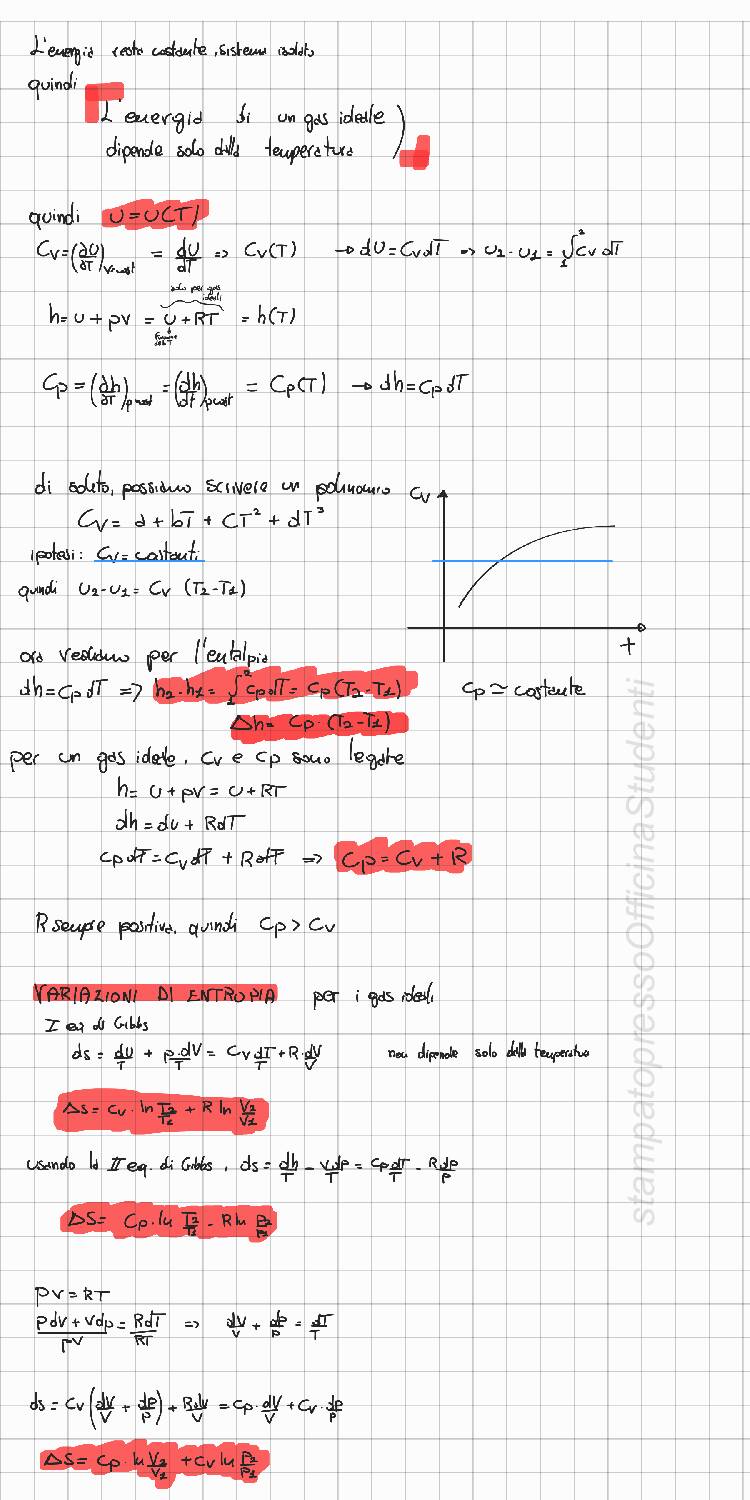 L'energia resta costante, sistema isolato
quindi
L'energia di un gas ideale
dipende solo dalla temperatura
quindi U=U(T)
Cv=(∂U/∂T)v cost = dU/dT => Cv(T) → dU=CvdT => U2-U1=∫₁²Cv dT
solo per gas ideali
h=U+pv = U+RT = h(T)
funzione di T
Cp=(∂h/∂T)p cost=(dh/dt)p cost = Cp(T) → dh=CpdT
di solito, possiamo scrivere un polinomio
Cv
Cv= a+bT+CT²+dT³
ipotesi: Cv=costanti
quindi U2-U1=Cv (T2-T1)
T
ora vediamo per l'entalpia
dh=CpdT => h2-h1=∫₁²CpdT=Cp(T2-T1) Cp≃costante
Δh= Cp·(T2-T1)
per un gas ideale, Cv e Cp sono legate
h= U+pv=U+RT
dh=du+RdT
CpdT=CvdT+RdT => Cp=Cv+R
R sempre positiva, quindi Cp>Cv
VARIAZIONI DI ENTROPIA per i gas ideali
I eq di Gibbs
ds=dU/T+p·dV/T=CvdT/T+R·dV/V non dipende solo dalla temperatura
Δs=Cv·ln T2/T2+R ln V2/V1
usando la II eq. di Gibbs, ds=dh/T-vdp/T=CpdT/T-Rdp/p
ΔS= Cp·ln T2/T1-R ln P2/P1
PV=RT
pdv+vdp/pV=RdT/RT => dV/V+dp/p=dT/T
ds=Cv(dV/V+dp/p)+Rdv/V=Cp·dV/V+Cv·dp/p
ΔS=Cp·ln V2/V1+Cv ln P2/P1
stampatopressoOfficinaStudenti